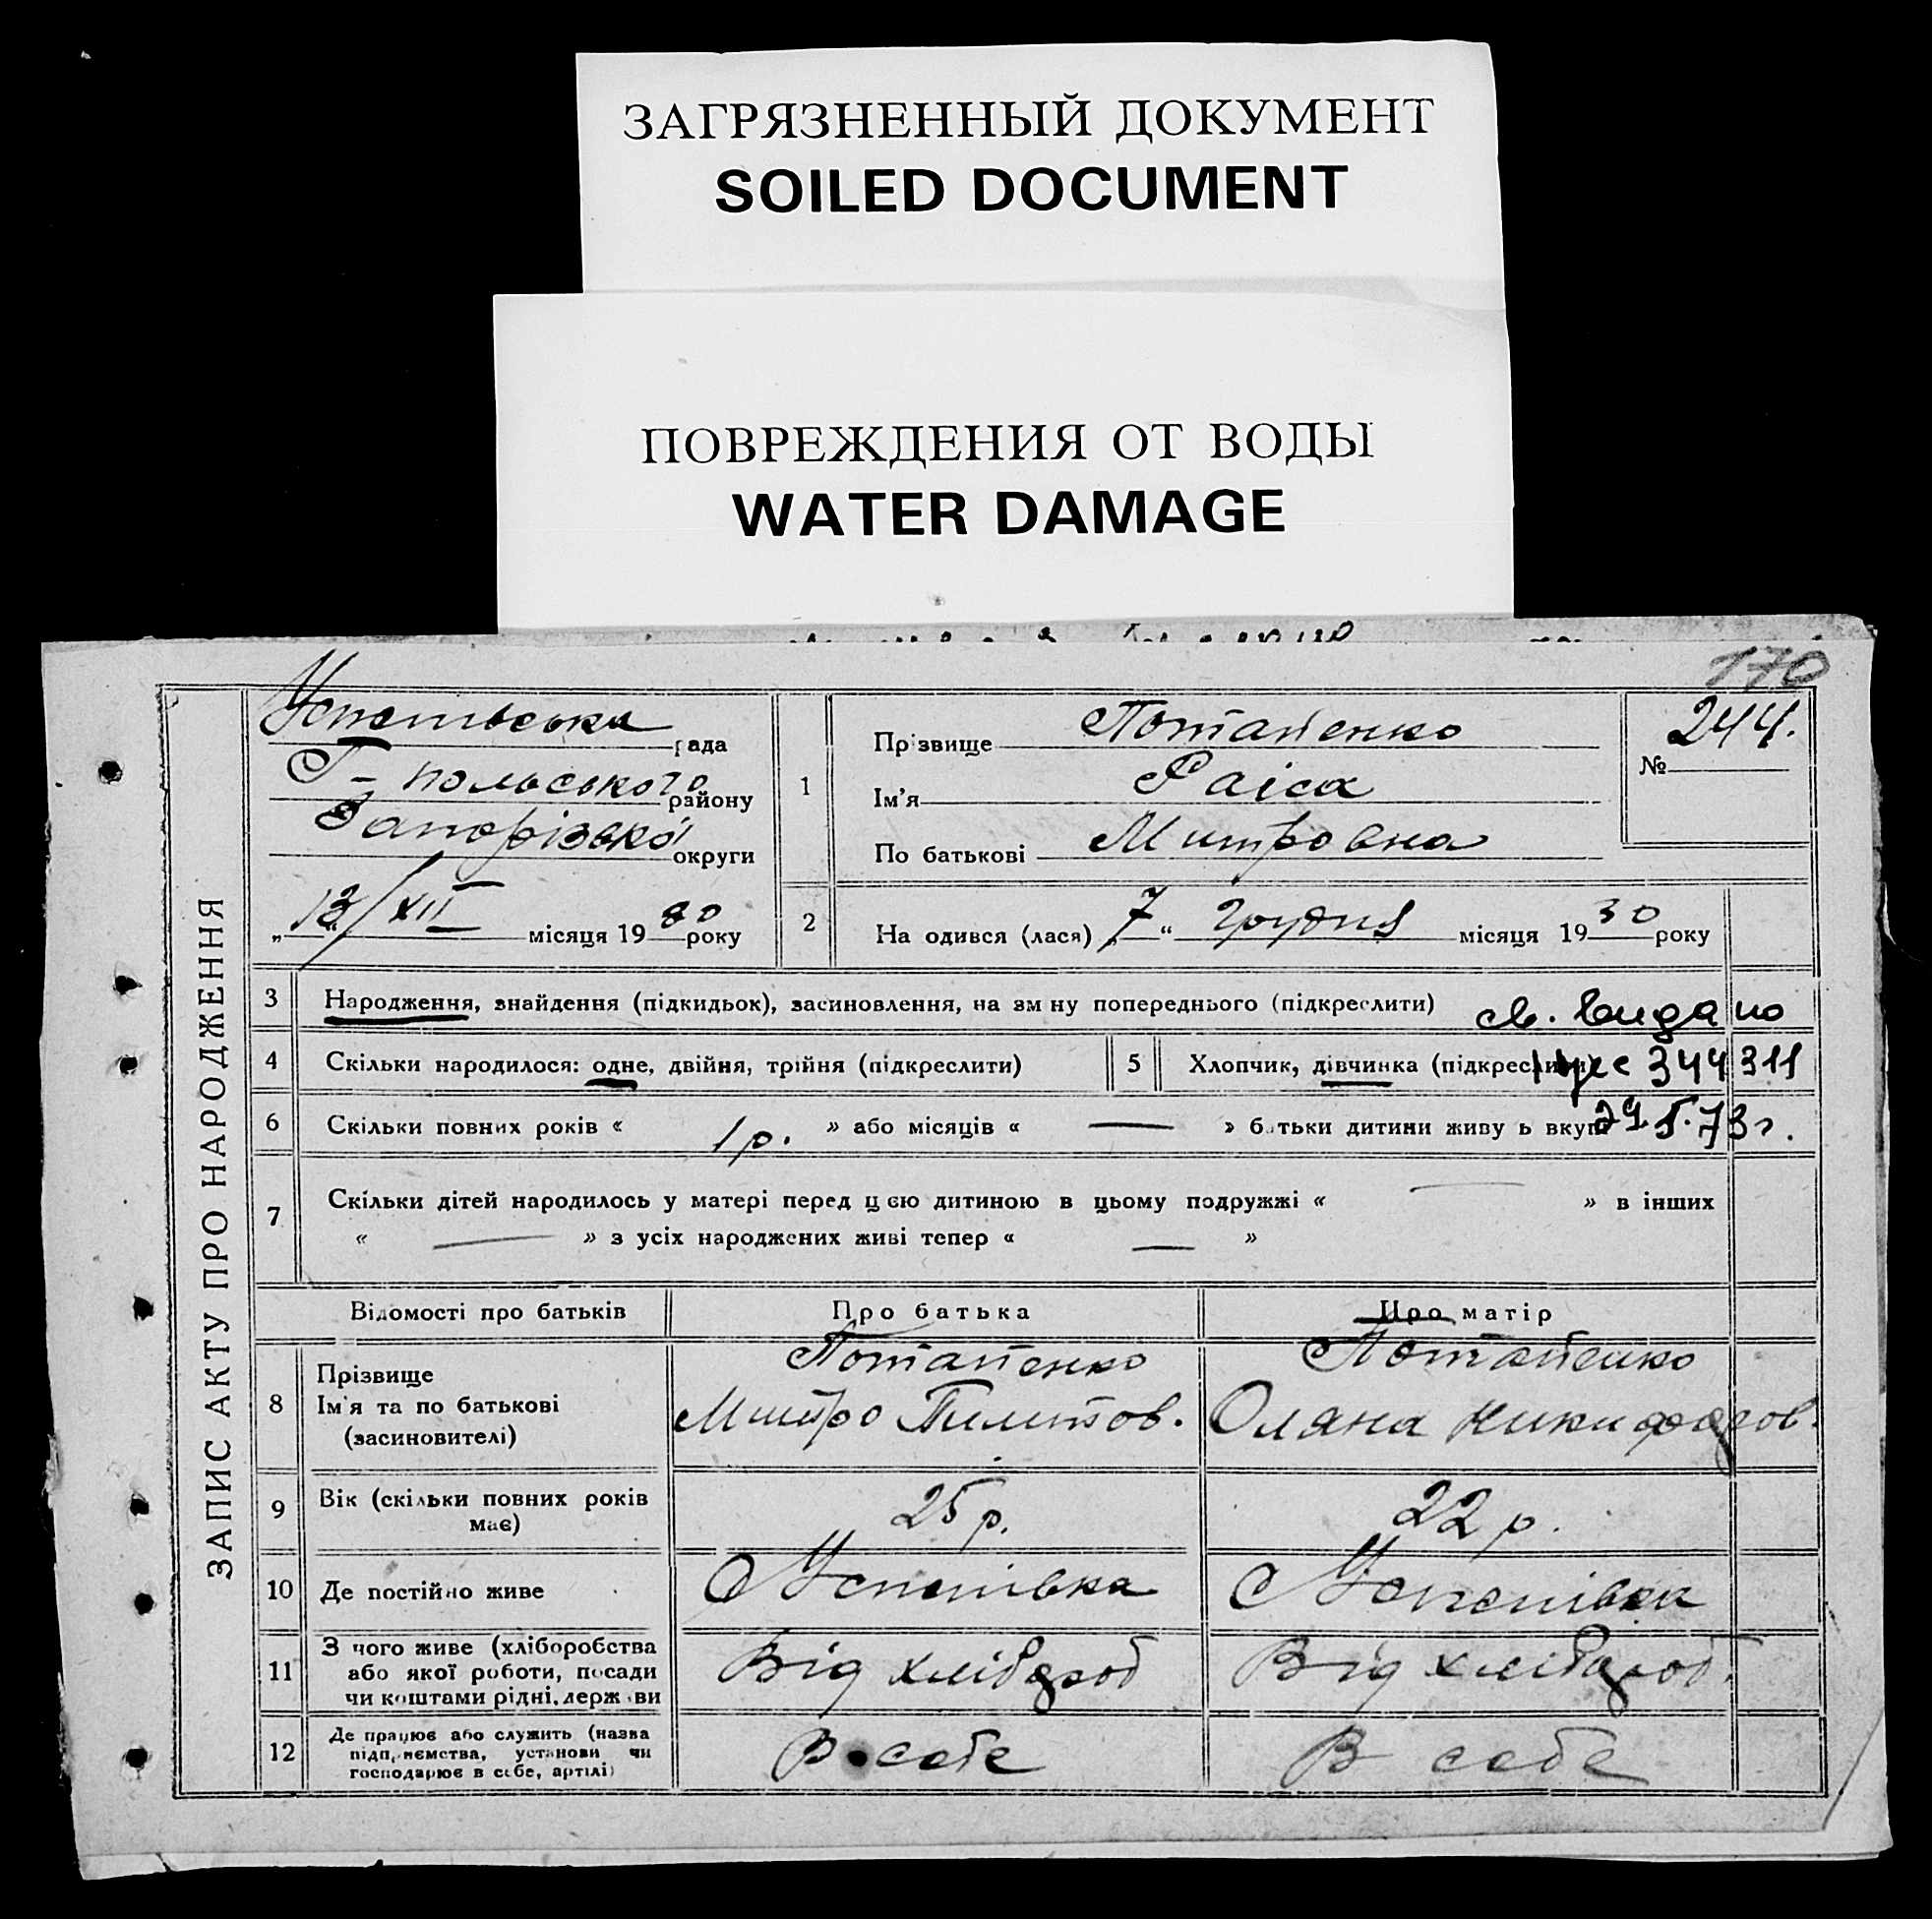 ЗАГРЯЗНЕННЫЙ ДОКУМЕНТ
SOILED DOCUMENT
ПОВРЕЖДЕНИЯ ОТ ВОДЫ
WATER DAMAGE
170
ЗАПИС АКТУ ПРО НАРОДЖЕННЯ
Успенівська рада
Г-польського району
Запорізької округи
„13/XII місяця 1930 року
1
Прізвище Потапенко
Ім'я Раіса
По батькові Митровна
№ 244.
2
На одився (лася) „7“ Грудня місяця 1930 року
3 Народження, знайдення (підкидьок), засиновлення, на зм ну попереднього (підкреслити)
св. видано
4 Скільки народилося: одне, двійня, трійня (підкреслити)
5 Хлопчик, дівчинка (підкреслити)
344311
6 Скільки повних років « 1 р. » або місяців « — » батьки дитини живу ь вкупі
29.5.73 г.
7 Скільки дітей народилось у матері перед цією дитиною в цьому подружжі « — » в інших
« — » з усіх народжених живі тепер « — »
Відомості про батьків
Про батька
Про матір
8 Прізвище
Ім'я та по батькові
(засиновителі)
Потапенко
Митро Пилипов.
Потапенко
Оляна Никифоров.
9 Вік (скільки повних років
має)
25 р.
22 р.
10 Де постійно живе
С Успенівка
С Успенівка
11 З чого живе (хліборобства
або якої роботи, посади
чи коштами рідні, держ ви
Від хлібороб
Від хлібороб.
12 Де працює або служить (назва
підприємства, установи чи
господарює в себе, артілі)
В себе
В себе